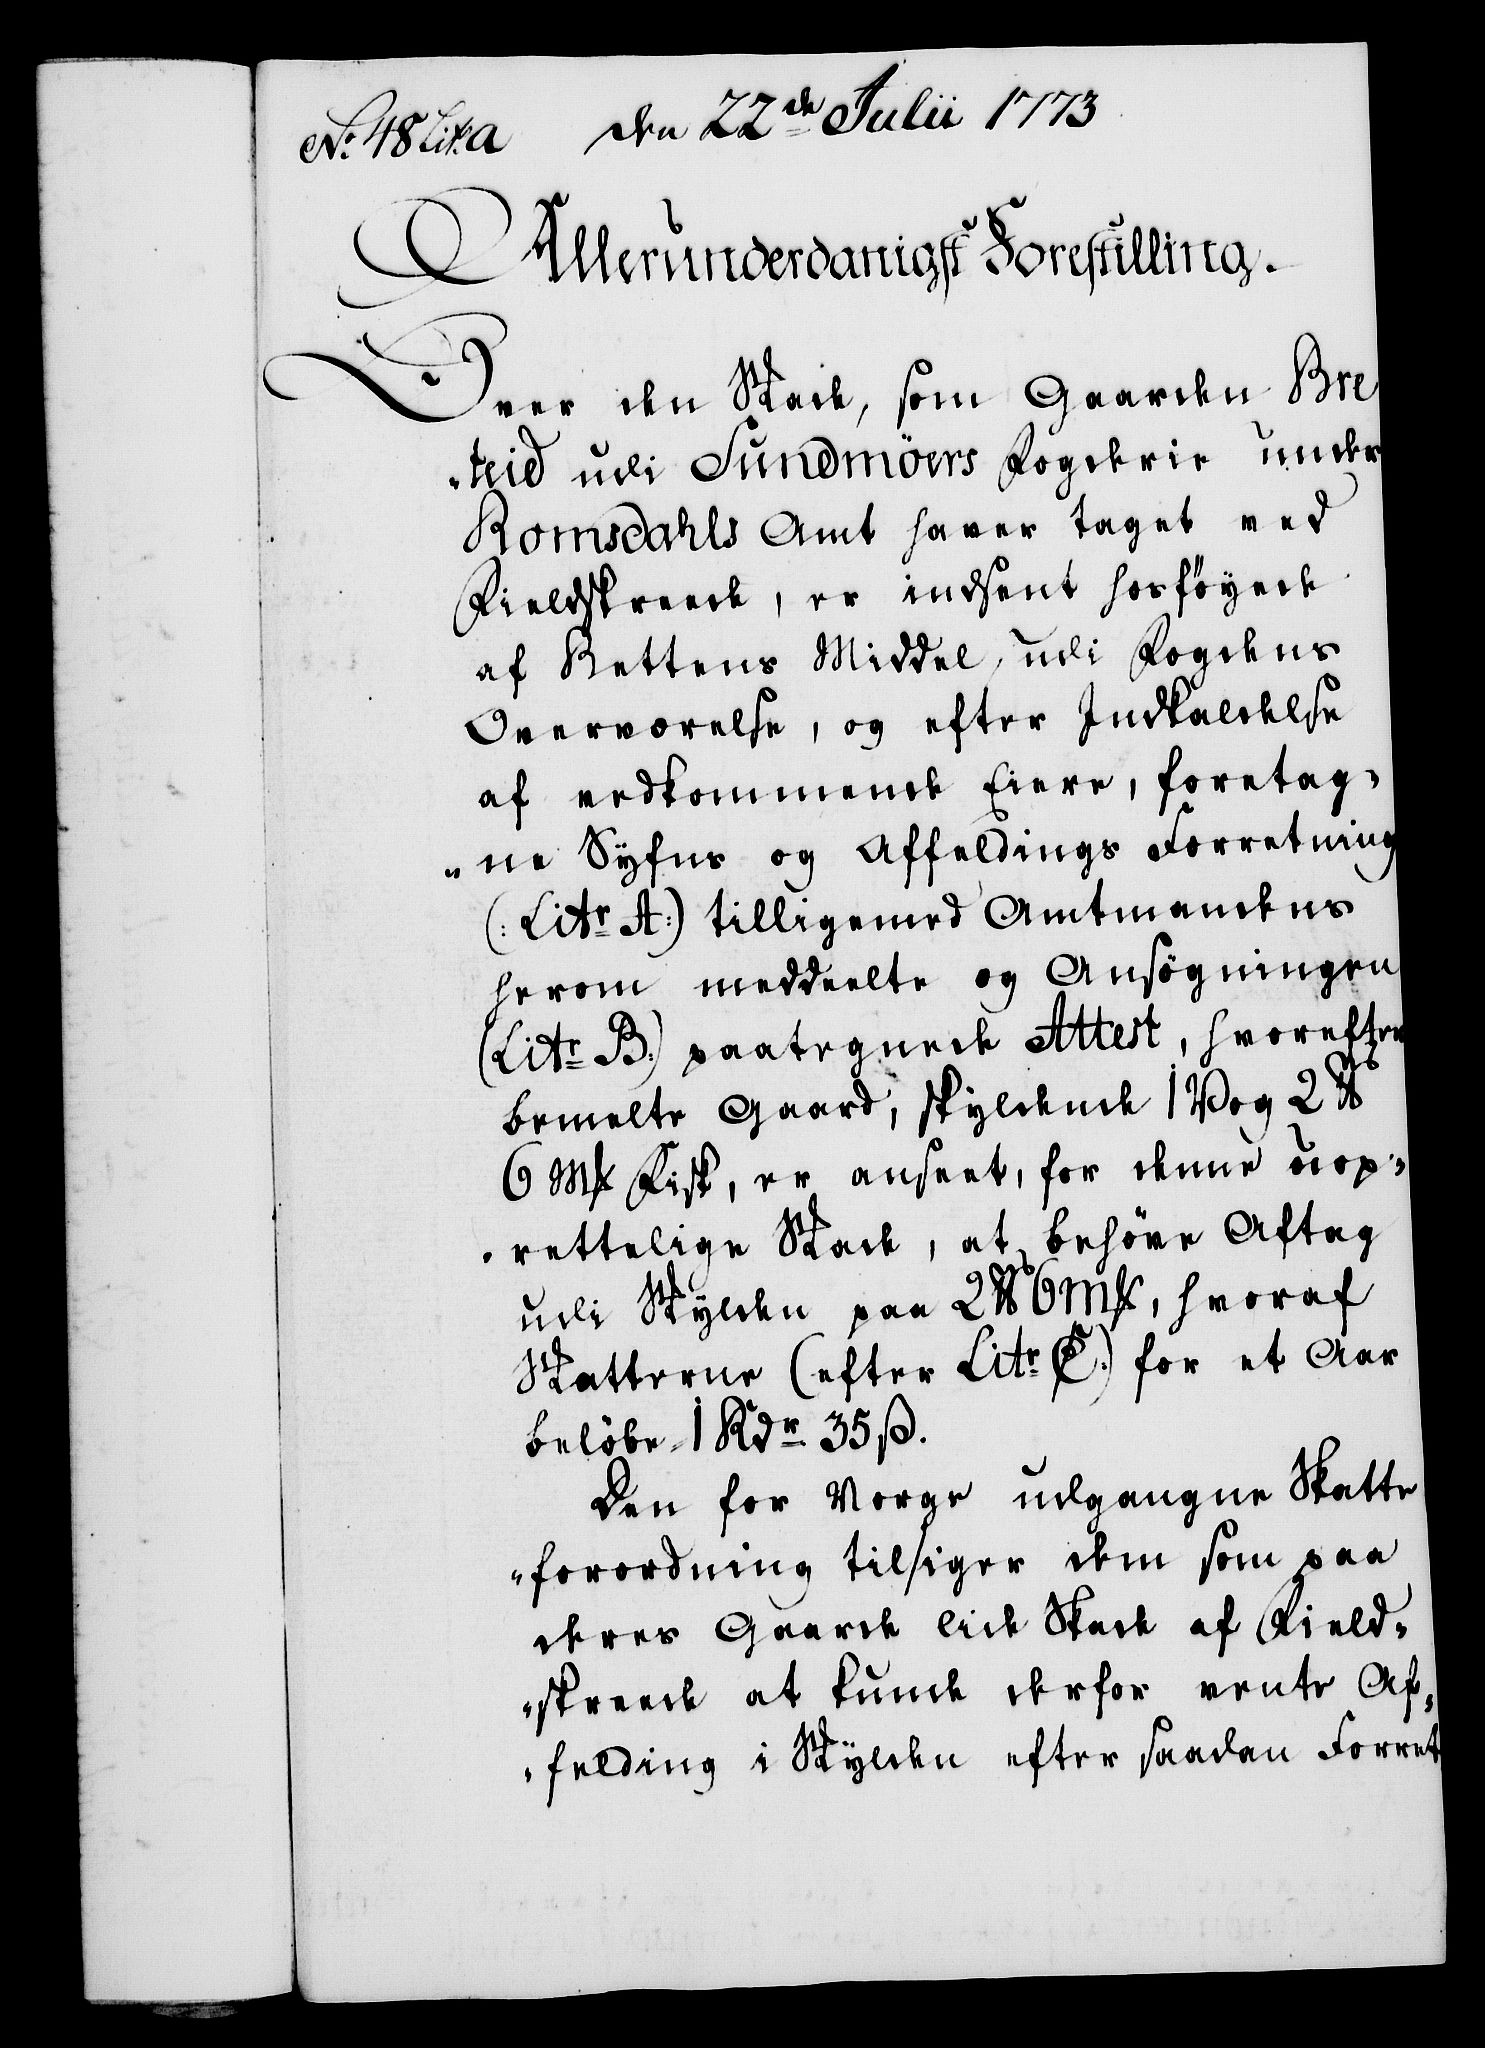 No: 48 Litr: a den 22de Julii 1773
Allerunderdanigst Forestilling.
Over den Skade, som Gaarden Bre
„teid udi Sundmöers Fogderie under
Romsdahls Amt haver taget ved
Fieldskreede, er indsent hosföyede
af Rettens Middel, udi Fogdens
Overværelse, og efter Indkaldelse
af vedkommende Eiere, foretag„
„ne Syhns og Affeldings Forretning
(: Litr A:) tilligemed Amtmandens
herom meddeelte og Ansögningen
(Litr B:) paategnede Attest, hvorefter
bemelte Gaard, skyldende 1 Vog 2 ℔
6 Mk Fisk, er anseet, for denne uop„
„rettelige Skade, at behöve Aftag
udi Skylden paa 2 ℔ 6 Mk, hvoraf
Skatterne (efter Litr C:) for et Aar
belöbe 1 Rdr 35 ß.
Den for Norge udgangne Skatte
„forordning tilsiger dem som paa
deres Gaarde lide Skade af Field„
„skreede at kunde derfor vente Af„
„felding i Skylden efter saadan Forret